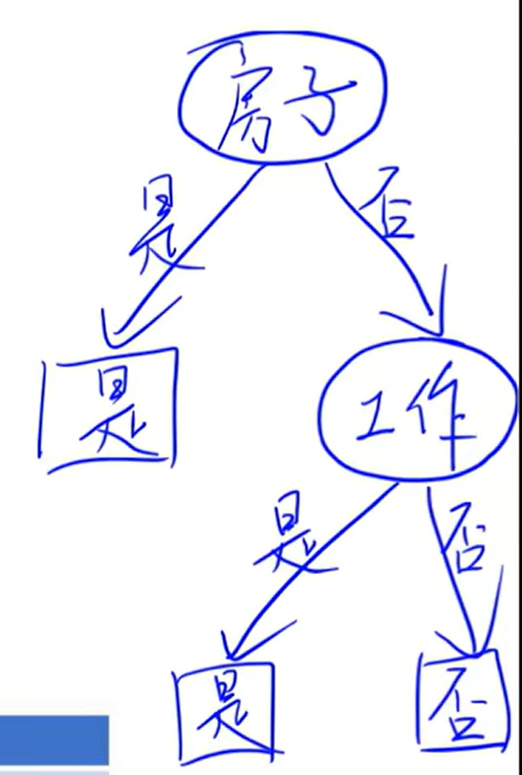 房子
是
否
是
工作
是
否
是
否